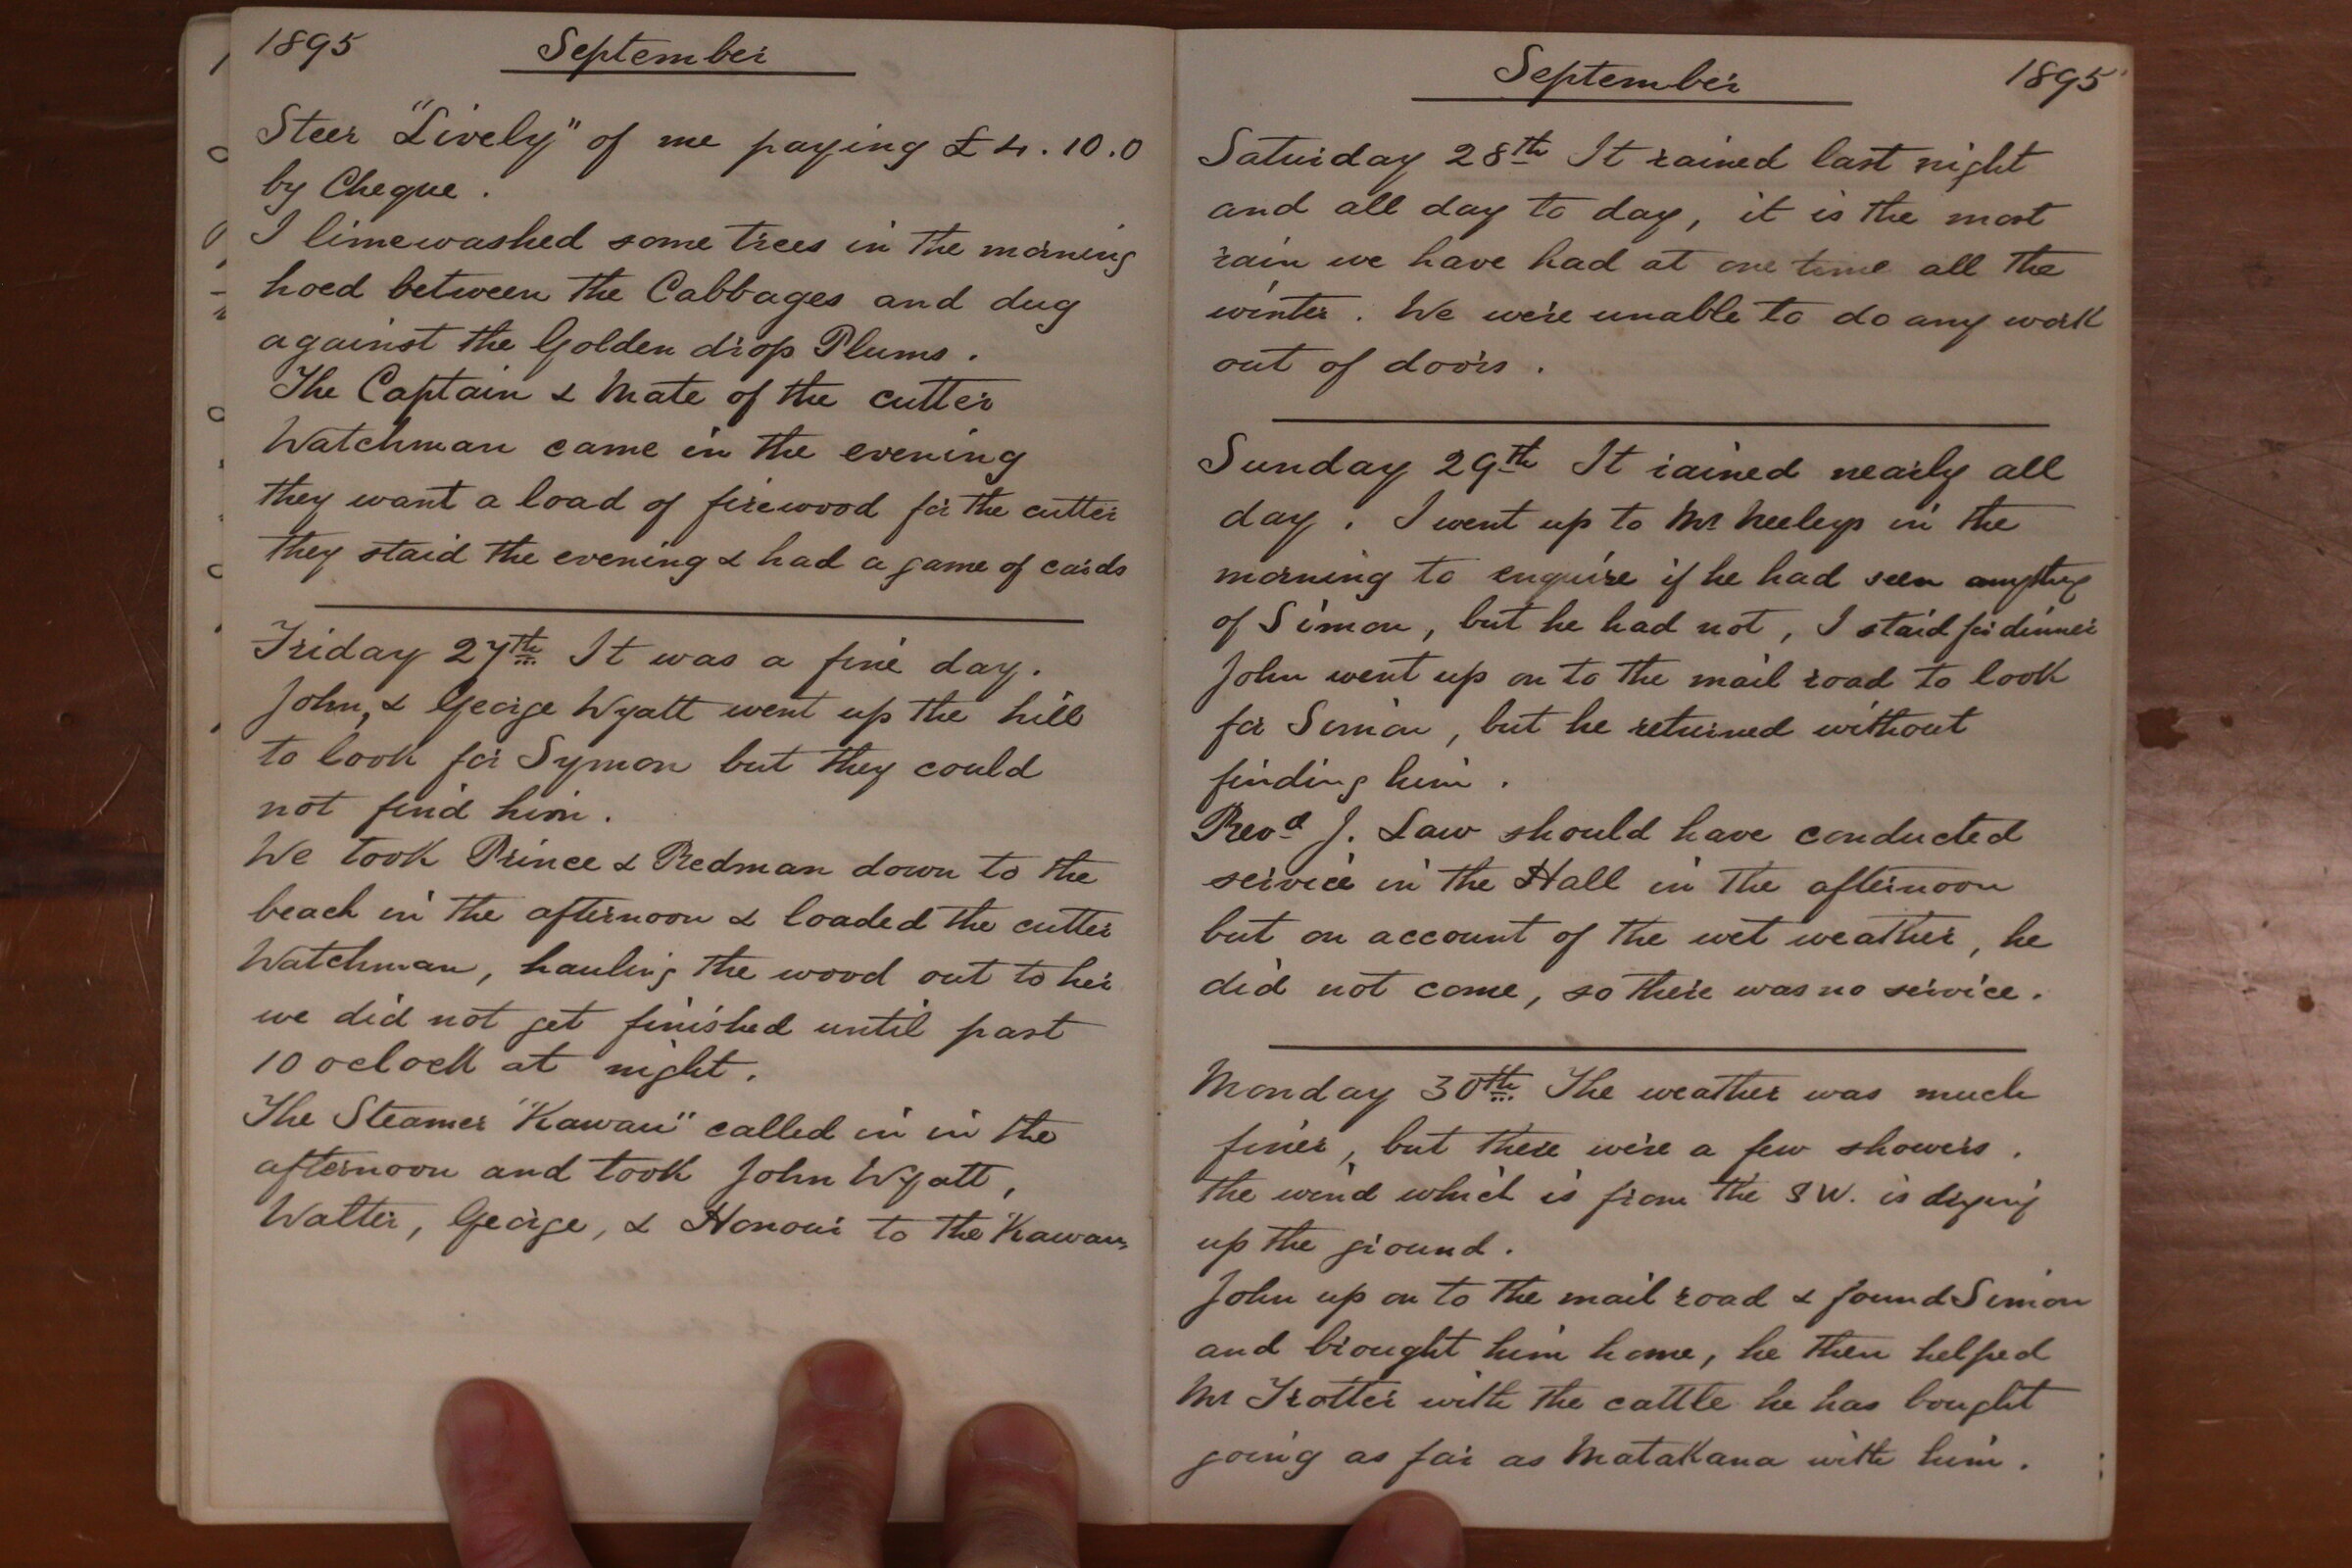 1895 September
Steer "Lively" of me paying £4.10.0
by Cheque.
I limewashed some trees in the morning
hoed between the Cabbages and dug
against the Golden drop Plums.
The Captain & Mate of the cutter
Watchman came in the evening
they want a load of firewood for the cutter
they staid the evening & had a game of cards
Friday 27th It was a fine day.
John, & George Wyatt went up the hill
to look for Symon but they could
not find him.
We took Prince & Redman down to the
beach in the afternoon & loaded the cutter
Watchman, hauling the wood out to her
we did not get finished until past
10 oclock at night.
The Steamer "Kawau" called in in the
afternoon and took John Wyatt,
Walter, George, & Honour to the Kawau,
September 1895
Saturday 28th It rained last night
and all day to day, it is the most
rain we have had at one time all the
winter. We were unable to do any work
out of doors.
Sunday 29th It rained nearly all
day. I went up to Mr Neeleys in the
morning to enquire if he had seen anything
of Simon, but he had not, I staid for dinner
John went up on to the mail road to look
for Simon, but he returned without
finding him.
Revd J. Law should have conducted
service in the Hall in the afternoon
but on account of the wet weather, he
did not come, so there was no service.
Monday 30th The weather was much
finer, but there were a few showers.
the wind which is from the SW. is drying
up the ground.
John up on to the mail road & found Simon
and brought him home, he then helped
Mr Trotter with the cattle he has bought
going as far as Matakana with him.